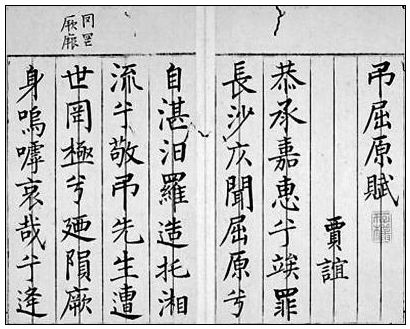 弔屈原賦
賈誼
恭承嘉惠兮竢罪
長沙仄聞屈原兮
自湛汨羅造托湘
流兮敬弔先生遭
世罔極兮廼隕厥
身嗚嘑哀哉兮逢
罔 罡
厥 厥